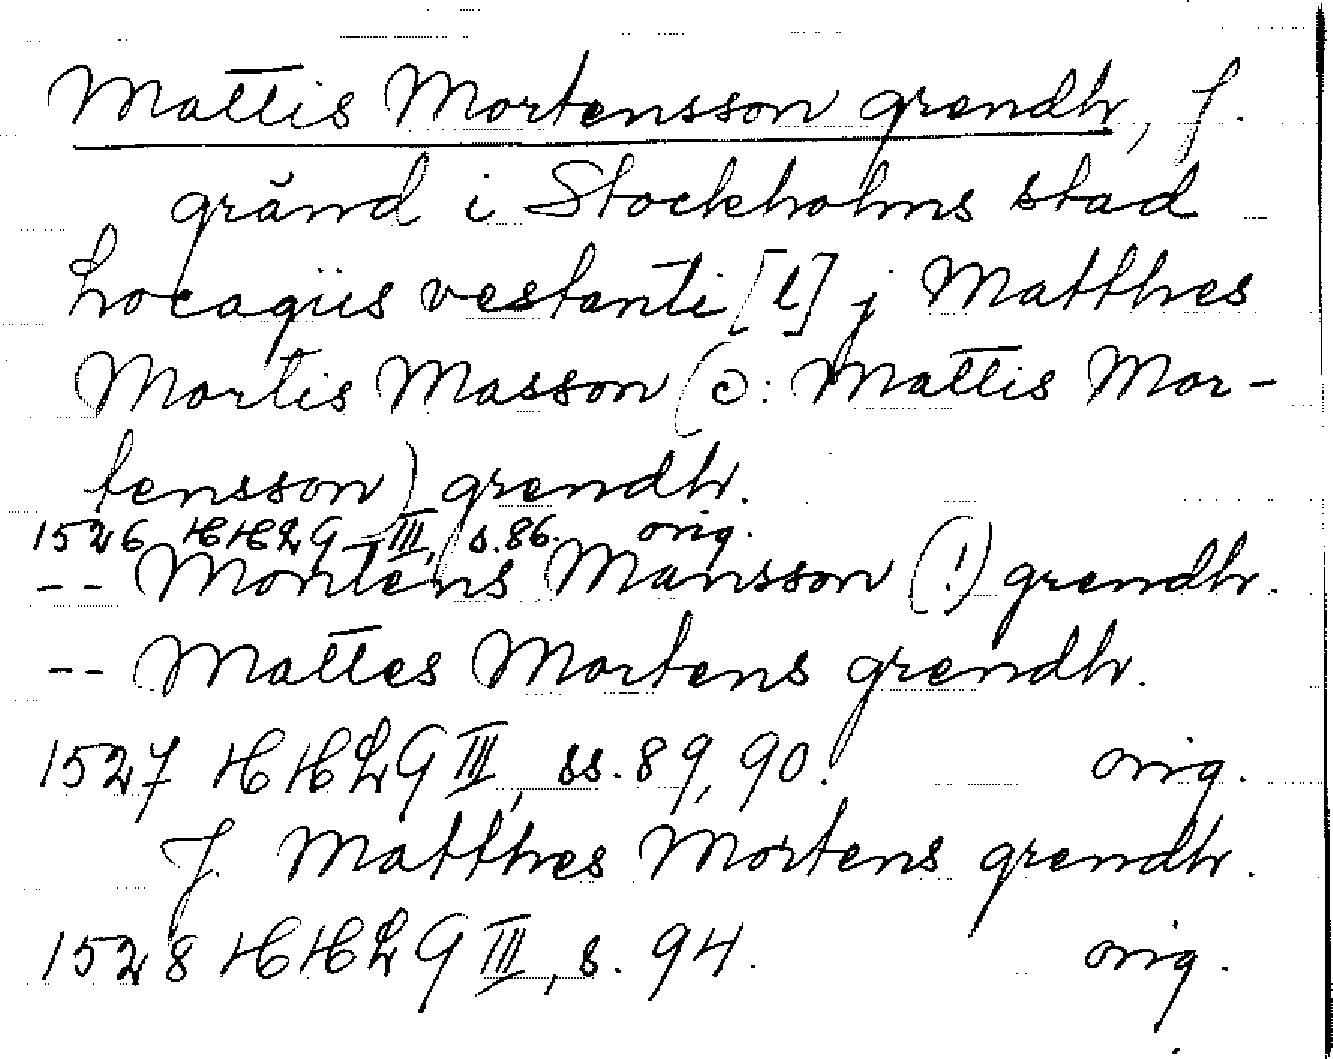 Mattis Mortensson grendh, f.
gränd i Stockholms stad
Locagiis vestanti [l] j Matthes
Mortis Masson (ɔ: Mattis Mor-
tensson) grendh.
1526 HHLG III, s. 86. orig.
-- Mortens Mansson (!) grendh.
-- Mattes Mortens grendh.
1527 HHLG III, ss. 89, 90. orig.
J. Matthes Mortens grendh.
1528 HHLG III, s. 94. orig.